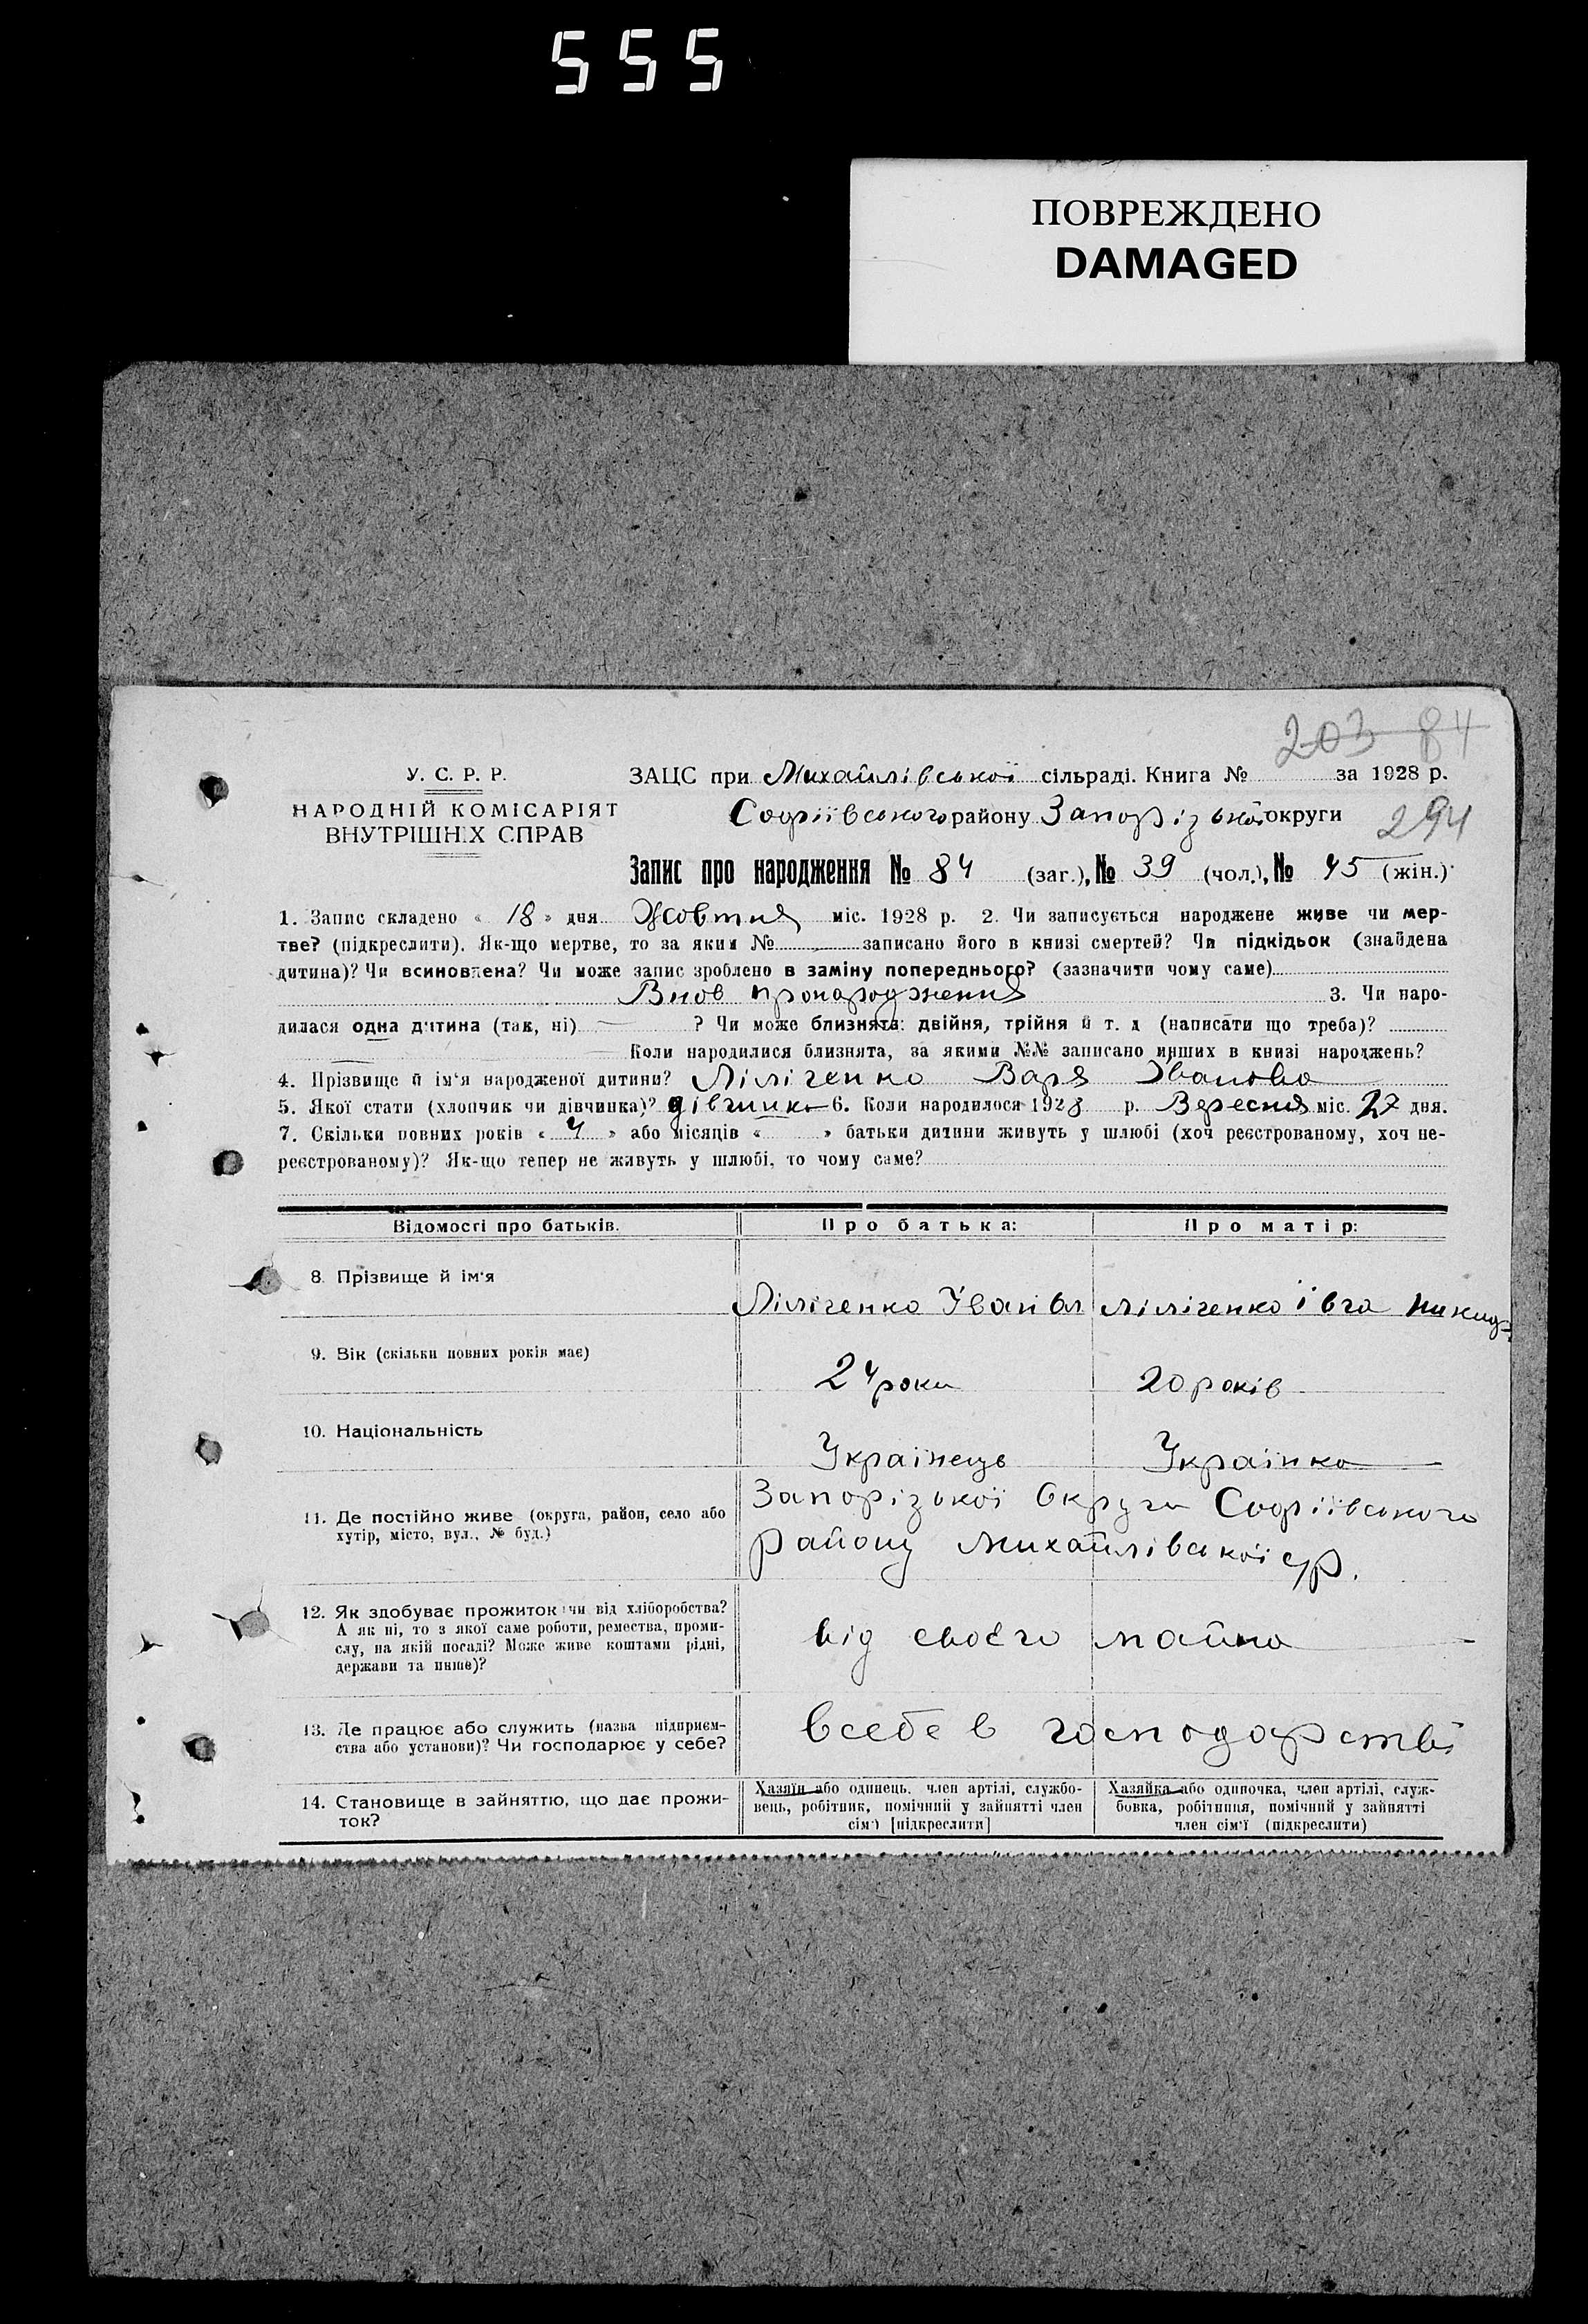 555
ПОВРЕЖДЕНО
DAMAGED
203 84
У. С. Р. Р.
НАРОДНІЙ КОМІСАРІЯТ
ВНУТРІШНІХ СПРАВ
ЗАЦС при Михайлівської сільраді. Книга № за 1928 р.
Софіївського району Запорізької округи
294
Запис про народження № 84 (заг.), № 39 (чол.), № 45 (жін.)
1. Запис складено « 18 » дня Жовтня міс. 1928 р. 2. Чи записується народжене живе чи мер-
тве? (підкреслити). Як-що мертве, то за яким № записано його в книзі смертей? Чи підкідьок (знайдена
дитина)? Чи всиновлена? Чи може запис зроблено в заміну попереднього? (зазначити чому саме)
Внов пронародження 3. Чи наро-
дилася одна дитина (так, ні) ? Чи може близнята: двійня, трійня й т. д (написати що треба)?
Коли народилися близнята, за якими №№ записано инших в книзі народжень?
4. Прізвище й ім'я народженої дитини? Ліліченко Варя Іванова
5. Якої стати (хлопчик чи дівчинка)? дівчинка 6. Коли народилося 1928 р. Вересня міс. 27 дня.
7. Скільки повних років « 4 » або місяців « » батьки дитини живуть у шлюбі (хоч реєстрованому, хоч не-
реєстрованому)? Як-що тепер не живуть у шлюбі, то чому саме?
Відомості про батьків. Про батька: Про матір:
8. Прізвище й ім'я
Ліліченко Іван Ол Ліліченко Івга Никид
9. Вік (скільки повних років має)
24 роки 20 років
10. Національність
Українець Українка
11. Де постійно живе (округа, район, село або
хутір, місто, вул., № буд.)
Запорізької Округи Софіївського
району Михайлівської с/р.
12. Як здобуває прожиток: чи від хліборобства?
А як ні, то з якої саме роботи, ремества, проми-
слу, на якій посаді? Може живе коштами рідні,
держави та инше)?
від своєго майна
13. Де працює або служить (назва підприєм-
ства або установи)? Чи господарює у себе?
всебе в господарстві
14. Становище в зайняттю, що дає прожи-
ток?
Хазяїн або одинець. член артілі, службо-
вець, робітник, помічний у зайнятті член
сім'ї [підкреслити]
Хазяйка або одиночка, член артілі, служ-
бовка, робітниця, помічний у зайнятті
член сім'ї (підкреслити)